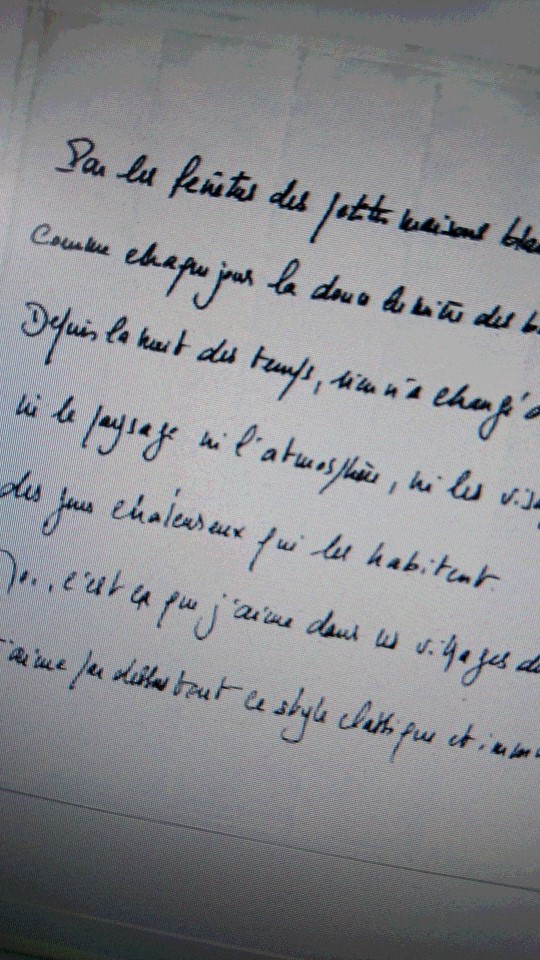 Par les fenêtres des petites maisons
Comme chaque jour la douce lumière des
Depuis la nuit des temps, rien n'a changé
ni le paysage ni l'atmosphère, ni les
des gens chaleureux qui les habitent.
c'est ça que j'aime dans ces villages
J'aime par dessus tout ce style classique et